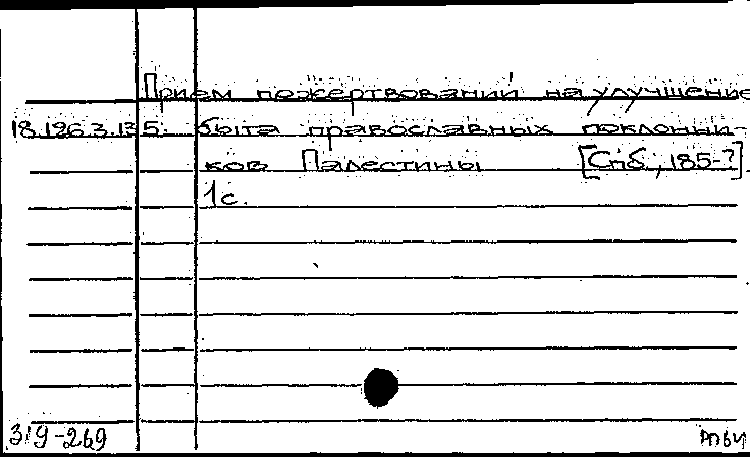 Прием пожертвований на улучшение
18.126.3.135. быта православных поклонни-
ков Палестины [Спб., 185-?]
1 с.
319-269